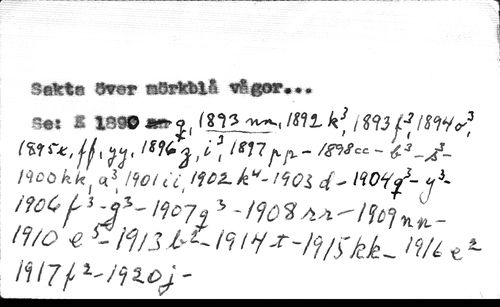 Sakta över mörkblå vågor...
Se: E 1890 q, 1893 nn, 1892 k³, 1893 f³, 1894 o³,
1895x, ff, yy, 1896 z, i³, 1897 pp - 1898cc - b³ - s³-
1900kk, a³, 1901 ii, 1902 k⁴ - 1903 d - 1904 q³ - y³-
1906 f³ - g³ - 1907 q³ - 1908 rr - 1909 nn -
1910 e⁵ - 1913 b² - 1914 t - 1915 kk - 1916 e²
1917 f² - 1920 j -